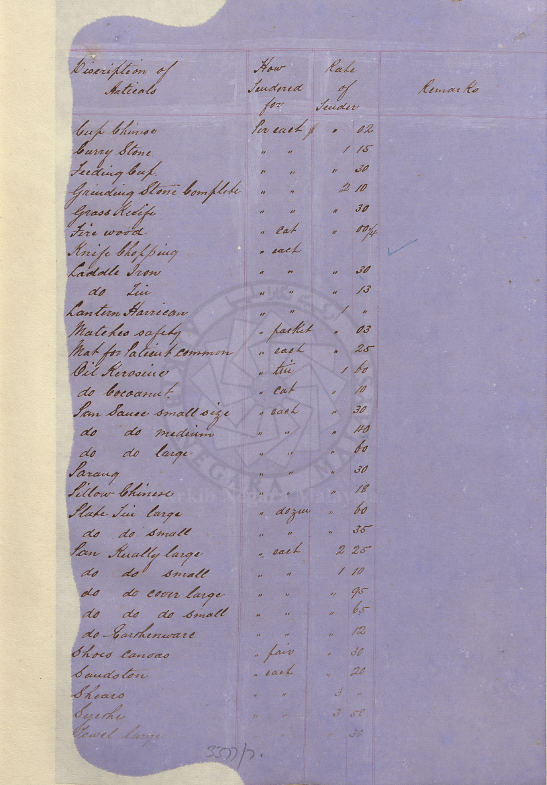 Discription of Articals How Tendored for Rate of Tender Remarks
Cup Chinese Per each $ " 02
Curry Stone " " 1 15
Feeding Cup " " " 30
Grinding Stone Complete " " 2 10
Grass Knife " " " 30
Fire wood " cat " 00 1/4
Knife Chopping " each
Laddle Iron " " " 30
do Tin " " " 13
Lantern Harrican " " 1 "
Matches safety " packet " 03
Mat for Patient common " each " 25
Oil Kerosine " tin 1 60
do Cocoanut " cat " 10
Pan Sauce small size " each " 30
do do medium " " " 40
do do large " " " 60
Parang " " " 30
Pillow Chinese " " " 18
Plate Tin large " dozen " 60
do do small " " " 35
Pan Kually large " each 2 25
do do small " " 1 10
do do cover large " " " 95
do do do small " " " 65
do Earthenware " " " 12
Shoes canvas " pair " 30
Sandston " each " 20
Shears " " 3 "
" " 3 50
Towel large " " " 30
3377/7.
Arkib Negara Malaysia